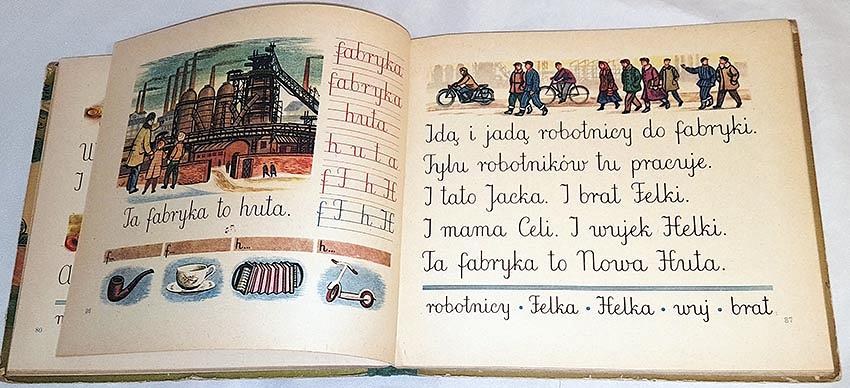 fabryka
fabryka
huta
h u t a
f F h H
f F h H
Ta fabryka to huta.
f... f... h... h...
80
Idą i jadą robotnicy do fabryki.
Tylu robotników tu pracuje.
I tato Jacka. I brat Felki.
I mama Celi. I wujek Helki.
Ta fabryka to Nowa Huta.
robotnicy • Felka • Helka • wuj • brat
87